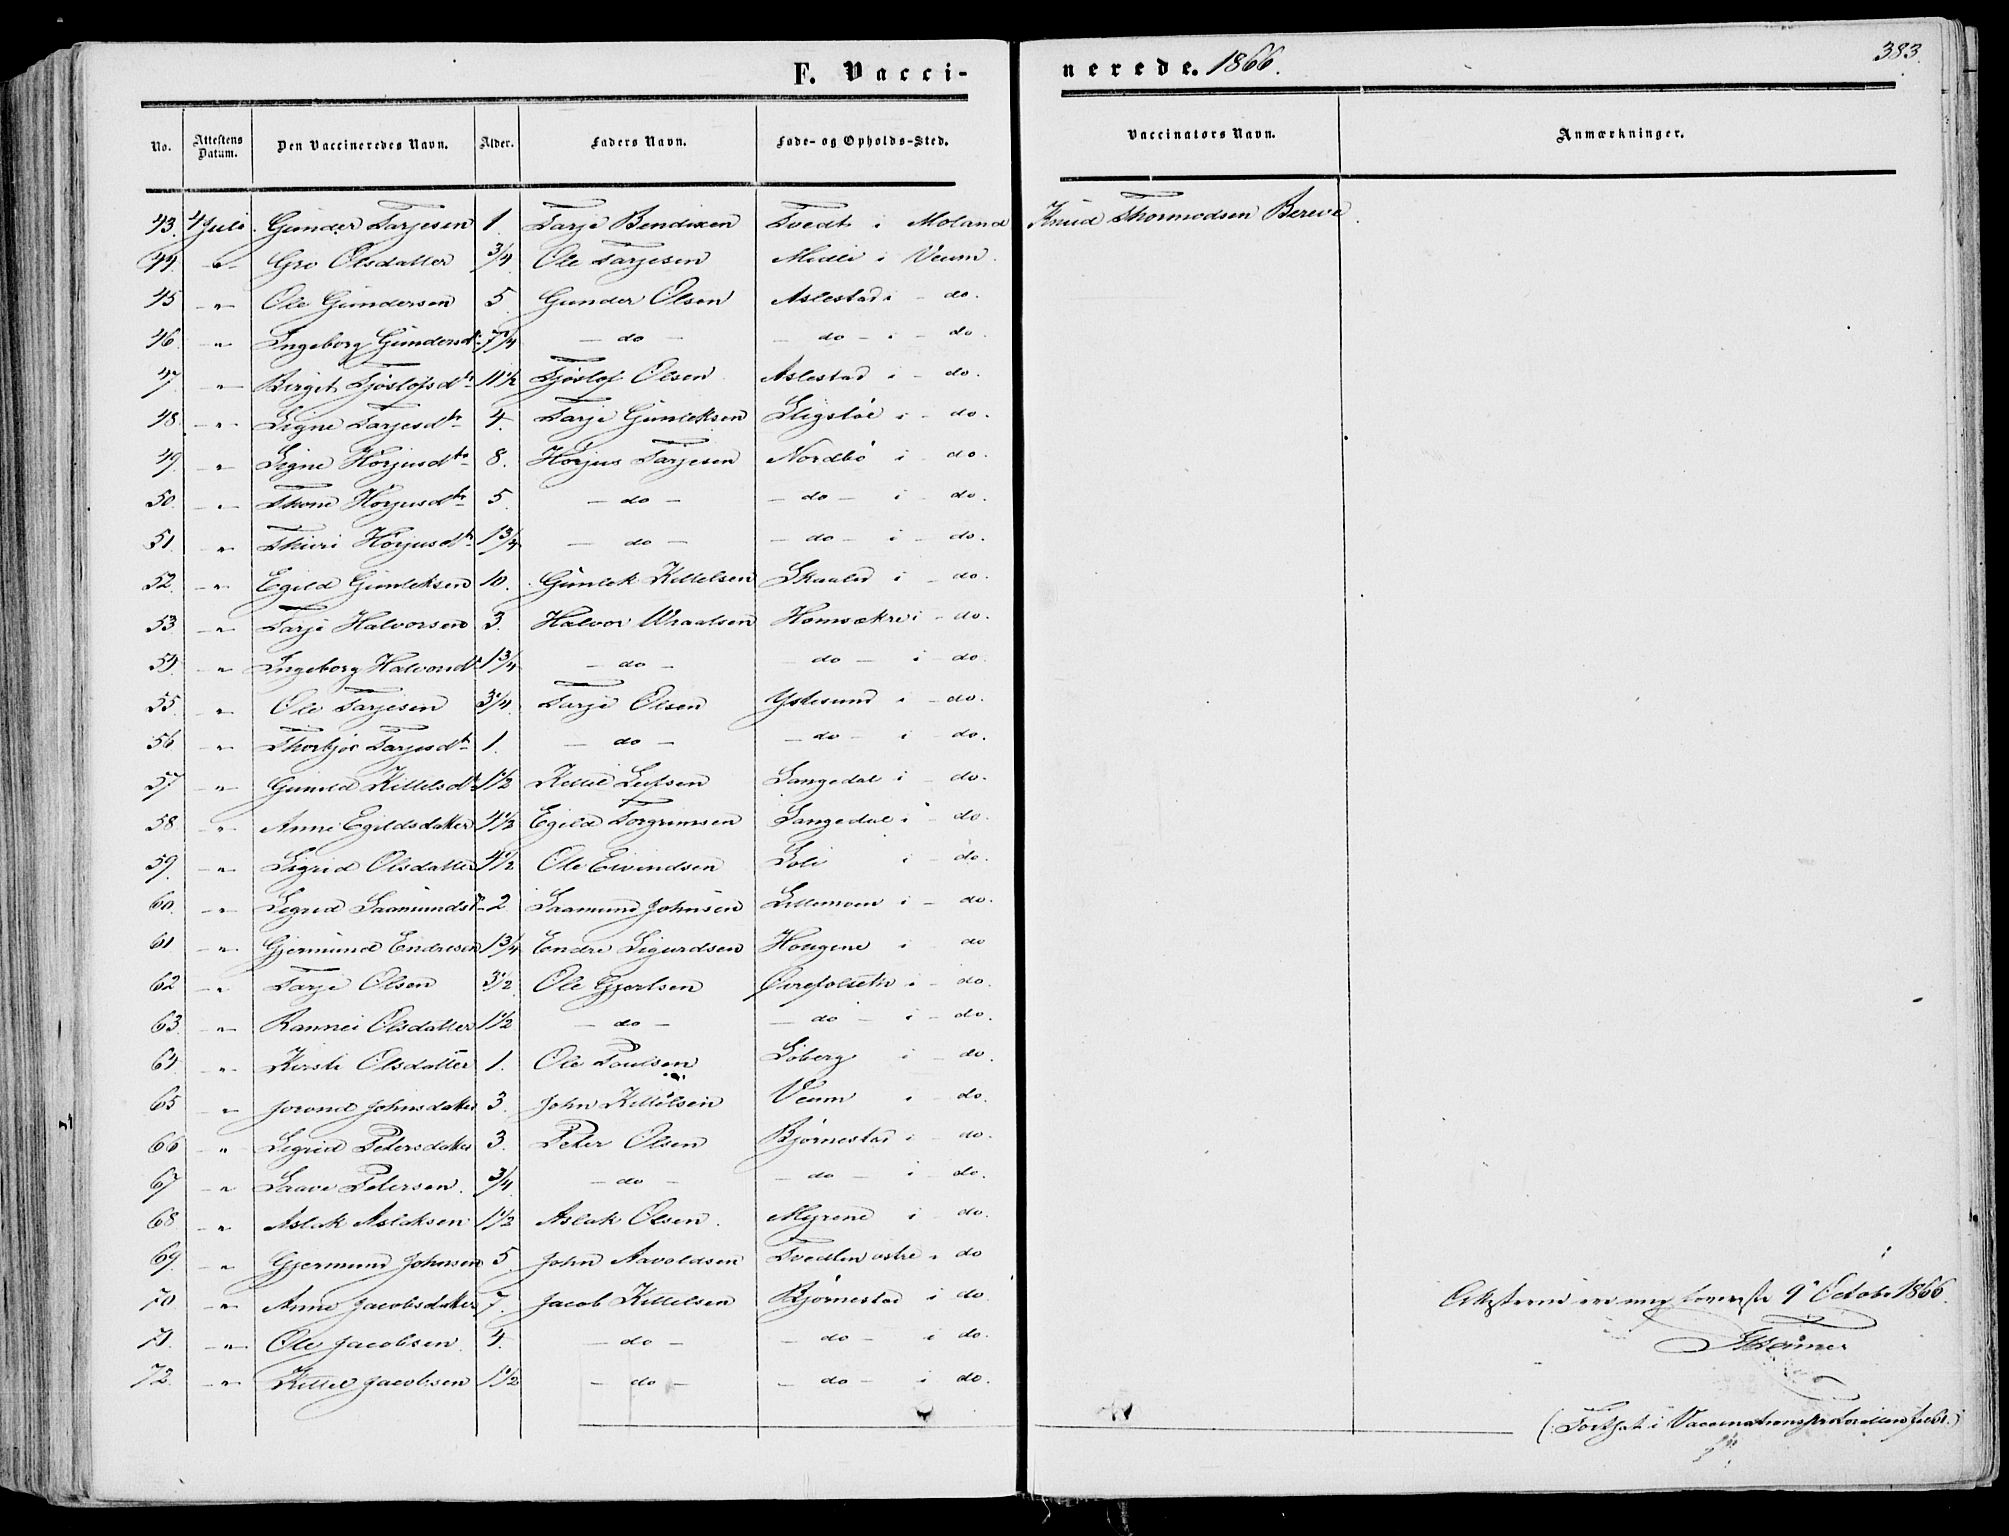 383.
F. Vaccinerede. 1866.
No. Attestens Datum. Den Vaccineredes Navn. Alder. Faders Navn. Føde- og Opholds-Sted. Vaccinatørs Navn. Anmærkninger.
43. 4 Juli. Gunder Tarjesen 1. Tarje Bendixen Tvedt i Moland Knud Thormodsen Bereve
44. -"- Gro Olsdatter 3/4 Ole Tarjesen Midli i Veum.
45 -"- Ole Gundersen 5. Gunder Olsen Aslestad i - do.
46. -"- Ingeborg Gundersdtr 7/4 - do - - do - i - do.
47. -"- Birget Tjøstofsdtr 11 1/2 Tjøstof Olsen Aslestad i - do.
48. -"- Signe Tarjesdtr 4. Tarje Gunleksen i - do.
49. -"- Signe Hørjusdtr 8. Hørjus Tarjesen Nordbø i - do.
50. -"- Thone Hørjusdtr 5. - do - - do - i - do.
51. -"- Thuri Hørjusdtr 1 3/4 - do - - do - i - do.
52. -"- Egild Gunleksen 10. Gunlek Kittelsen Skaaled i - do.
53 -"- Tarje Halvorsen 3. Halvor Wraalsen Homvekre i - do.
54. -"- Ingeborg Halvorsdtr 1 3/4 - do - - do - i - do.
55. -"- Ole Tarjesen 3 1/4. Tarje Olsen Ystesund i - do.
56 -"- Thorbjør Tarjesdtr 1. - do - - do - i - do.
57. -"- Gunild Kittelsdtr 1 1/2 Kittil Leifsen Langedal i - do.
58. -"- Anne Egildsdatter 4 1/2 Egild Torgrimsen Langedal i - do.
59. -"- Sigrid Olsdatter 4 1/2 Ole Eivindsen Loli i - do.
60. -"- Sigrid Saamundsdtr 2 Saamund Johnsen Lillemoen i - do.
61. -"- Gjermund Endresen 1 3/4 Endre Sigurdsen Hougene i - do
62 -"- Tarje Olsen 3 1/2. Ole Gjertsen i - do.
63. -"- Rannei Olsdatter 1 1/2 - do - - do - i - do.
64. -"- Kirsti Olsdatter 1. Ole Paulsen Loberg i - do.
65 -"- Jorond Johnsdatter 3. John Kittelsen Veum i - do.
66 -"- Sigrid Petersdatter 3. Peter Olsen Bjørnestad i - do.
67 -"- Saave Petersen. 3/4. - do - - do - i - do.
68 -"- Aslak Aslaksen 1 1/2 Aslak Olsen. Myrene i - do.
69. -"- Gjermund Johnsen 5. John Aavoldsen Tvedten østre i do
70. -"- Anne Jacobsdatter 7. Jacob Kittelsen Bjørnestad i do
71. -"- Ole Jacobsen 4. - do - - do - i do.
72. -"- Kittel Jacobsen 1 1/2 - do - - do - i do.
Attesterne ere mig leverede 9de October 1866.
(: Fortsat i Vaccinationsprotocollen